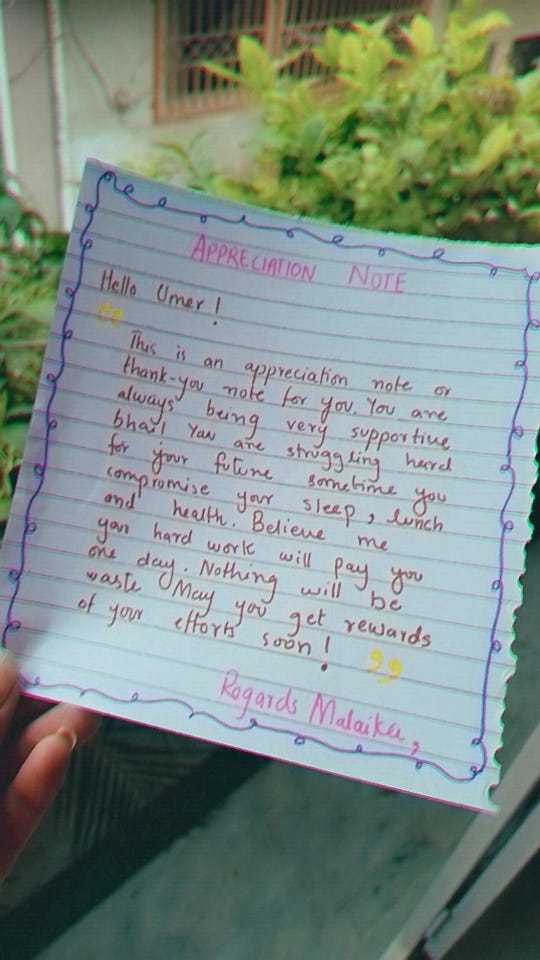 APPRECIATION NOTE
Hello Umer!
"
This is an appreciation note or
thank-you note for you. You are
always being very supportive
bhai! You are struggling hard
for your future sometime you
compromise your sleep, lunch
and health. Believe me
your hard work will pay you
one day. Nothing will be
waste May you get rewards
of your efforts soon! "
Regards Malaika,